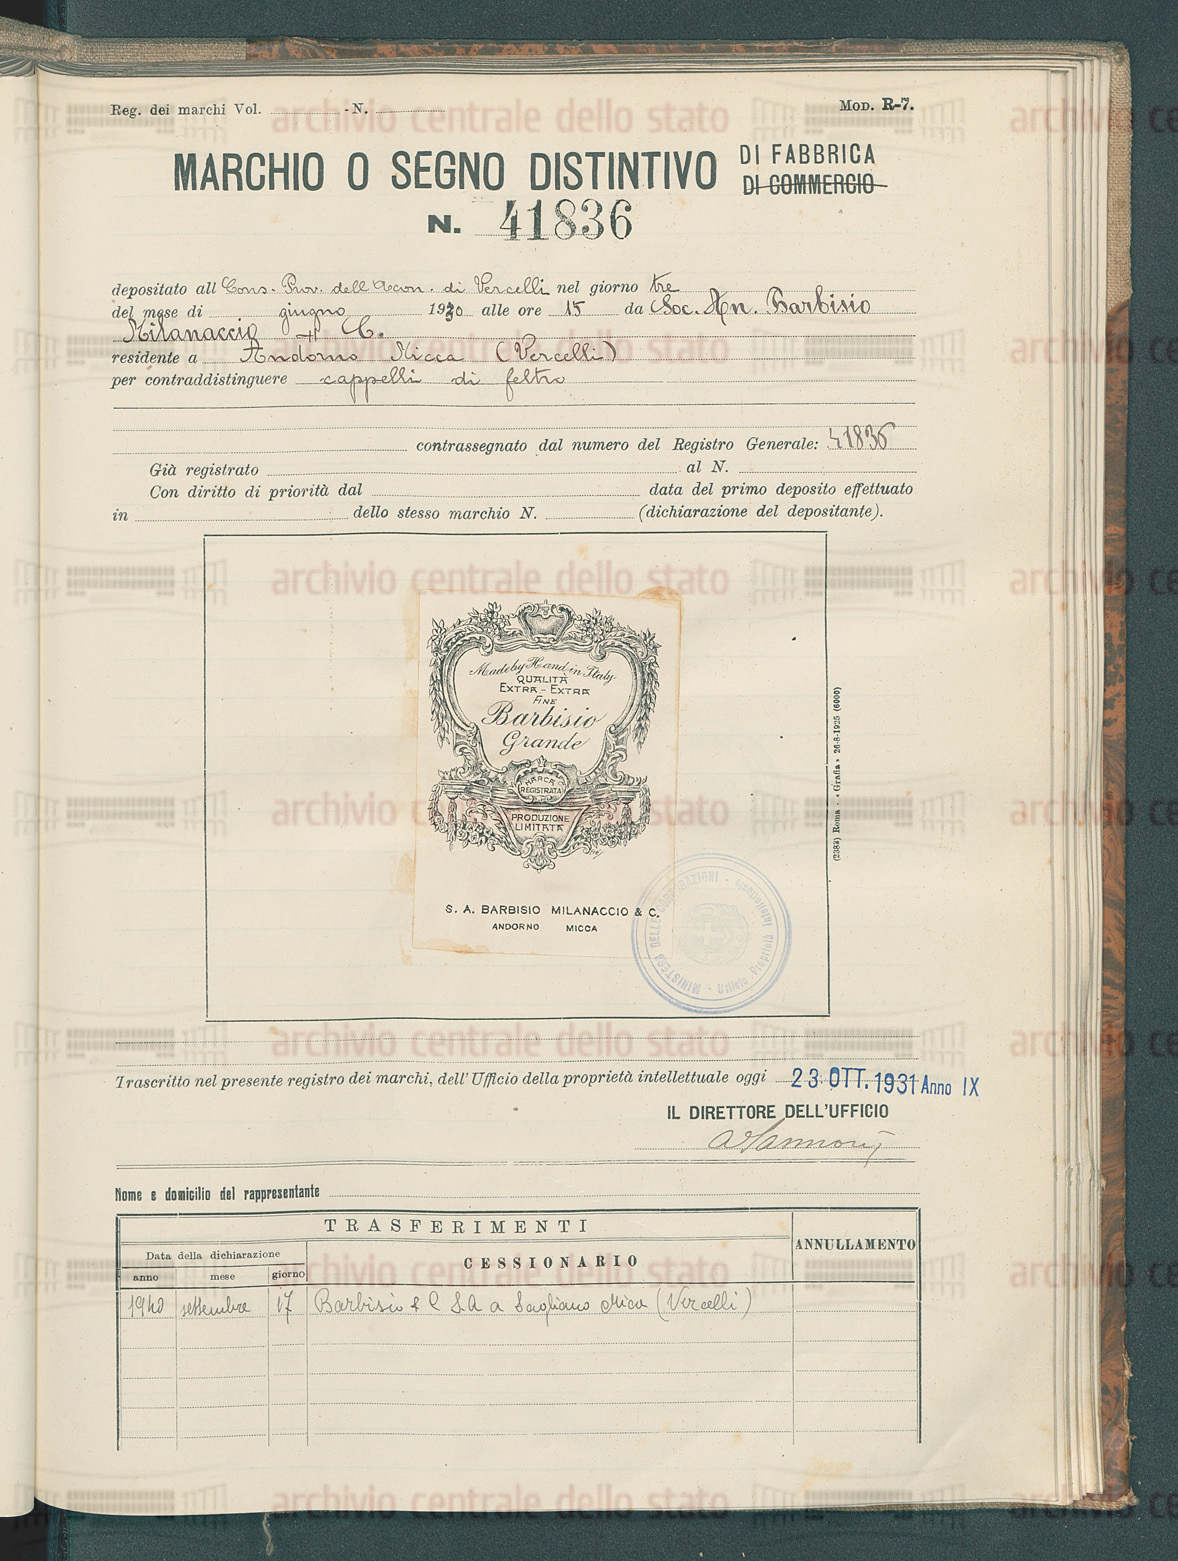 Reg. dei marchi Vol. - N. Mod. R-7.
MARCHIO O SEGNO DISTINTIVO DI FABBRICA
DI COMMERCIO
N. 41836
depositato all Cons. Prov. dell'Econ. di Vercelli nel giorno tre
del mese di giugno 1930 alle ore 15 da Soc. An. Barbisio
Milanaccio & C.
residente a Andorno Micca (Vercelli)
per contraddistinguere cappelli di feltro
contrassegnato dal numero del Registro Generale: 41836
Già registrato al N.
Con diritto di priorità dal data del primo deposito effettuato
in dello stesso marchio N. (dichiarazione del depositante).
Made by Hand in Italy
QUALITÀ
EXTRA - EXTRA
FINE
Barbisio
Grande
MARCA
REGISTRATA
PRODUZIONE
LIMITATA
S. A. BARBISIO MILANACCIO & C.
ANDORNO MICCA
(2383) Roma - « Grafia » 26-8-1925 (6000)
Trascritto nel presente registro dei marchi, dell'Ufficio della proprietà intellettuale oggi 23 OTT. 1931 Anno IX
IL DIRETTORE DELL'UFFICIO
Nome e domicilio del rappresentante
TRASFERIMENTI
ANNULLAMENTO
Data della dichiarazione
CESSIONARIO
anno mese giorno
1940 settembre 17 Barbisio & C S.A a Sagliano Micca (Vercelli)
archivio centrale dello stato